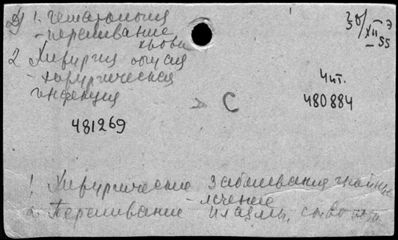 1. Гематология
- переливание
крови
2 Хирургия общая
- хирургическая
инфекция
30/XII - 55
Э
Чит.
480884
> С
481269
1. Хирургические заболевания гнойные
- лечение
2. Переливание плазмы,